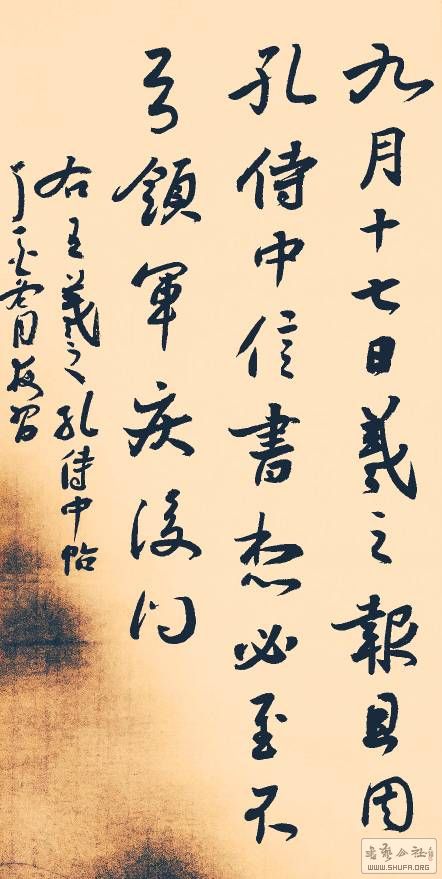 九月十七日羲之報且因
孔侍中信書想必至不
知領軍疾後問
右王羲之孔侍中帖
書艺公社
WWW.SHUFA.ORG